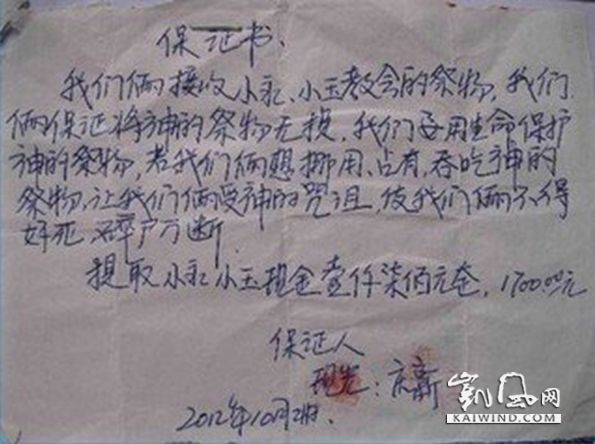 保证书、
我们俩接收小永、小玉教会的祭物,我们
俩保证将神的祭物无损,我们要用生命保护
神的祭物,若我们俩想挪用、占有、吞吃神的
祭物,让我们俩受神的咒诅,使我们俩不得
好死 碎尸万断.
提取小永 小玉现金壹仟柒佰元整,1700.00元
保证人
2012年10月2
凯风网
KAIWIND.COM